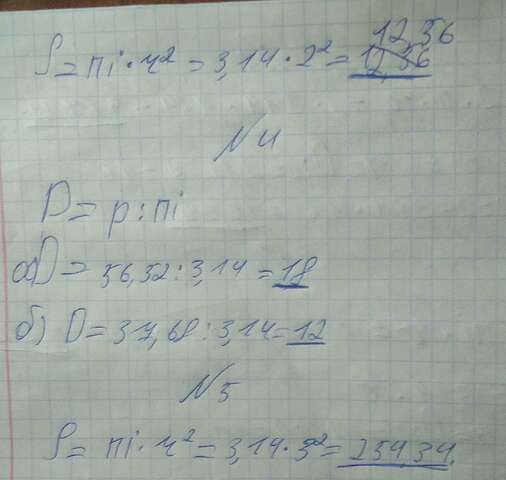 12,56
S = пі · r² = 3,14 · 2² = 12,56
N4
D = p : пі
а) D = 56,52 : 3,14 = 18
б) D = 37,68 : 3,14 = 12
N5
S = пі · r² = 3,14 · 3² = 254,34.